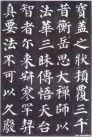 寶盖之狀頂覆三千
昔衡岳思大禪師以
法華三昧傳悟天台
智者尓来寂寥罕契
真要法不可以久廢